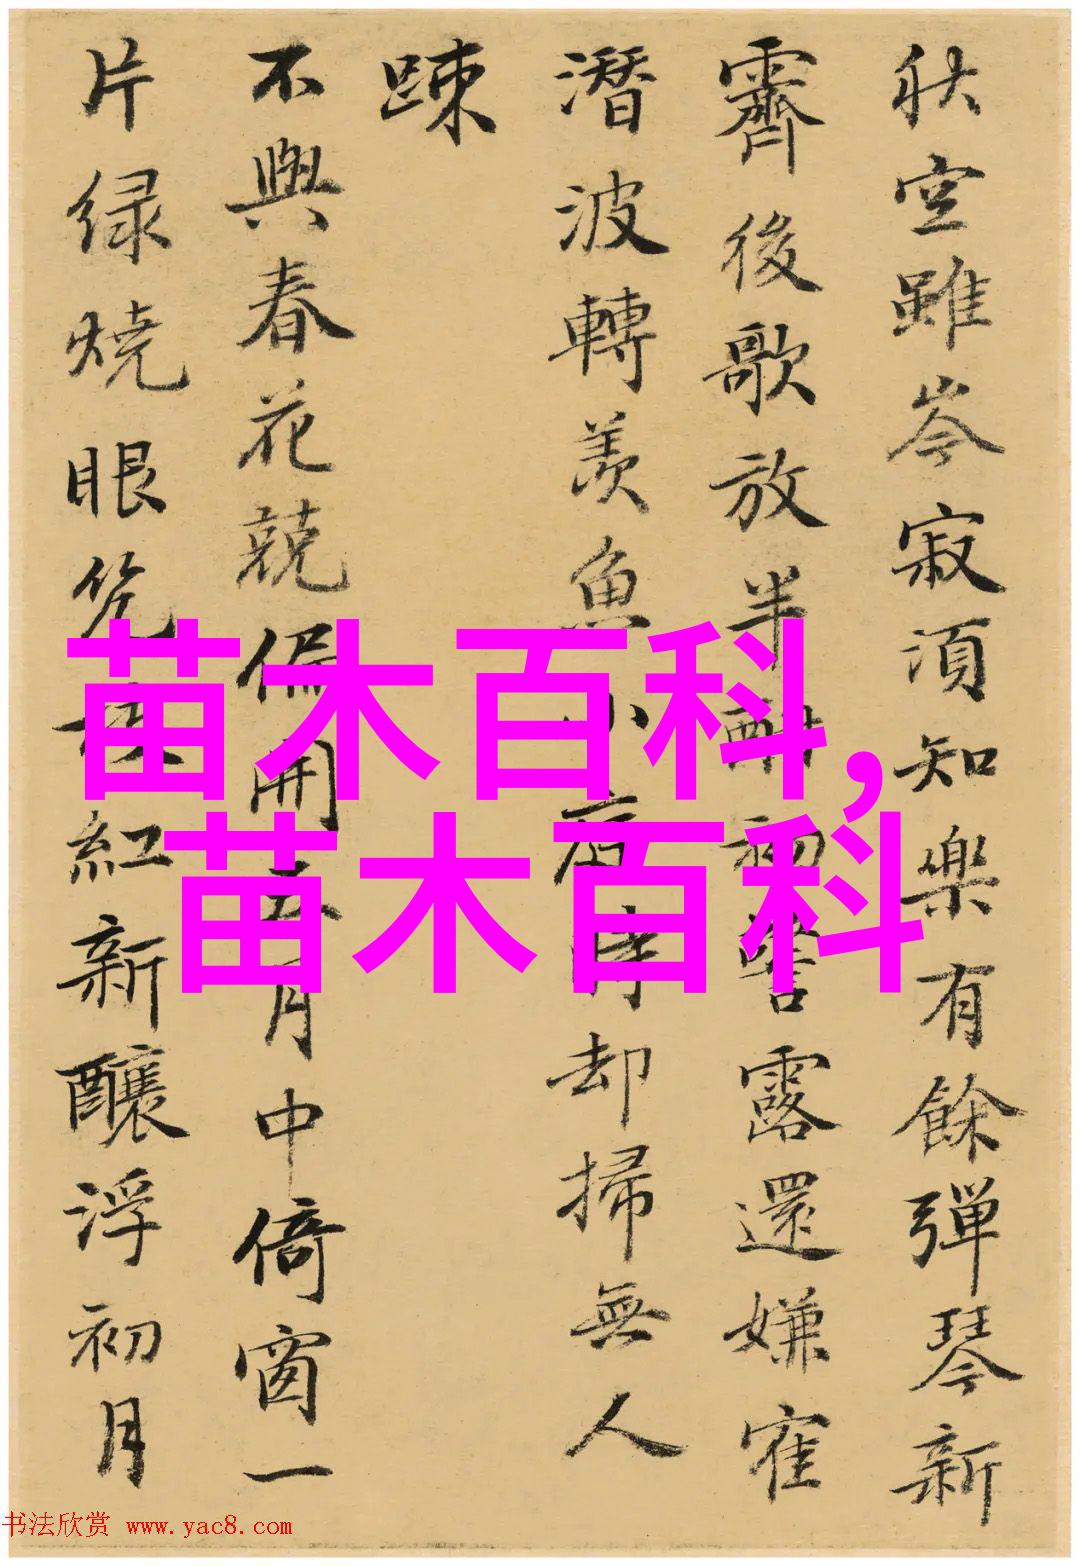 秋空雖岑寂湏知樂有餘彈琴新
霽後歌放半酣初警露還嫌寉
潛波轉羨魚小時却掃無人
踈
不與春花競偏開五月中倚窗一
片緑燒眼枝紅新釀浮初月
苗木百科,
苗木百科
书法欣赏 www.yac8.com